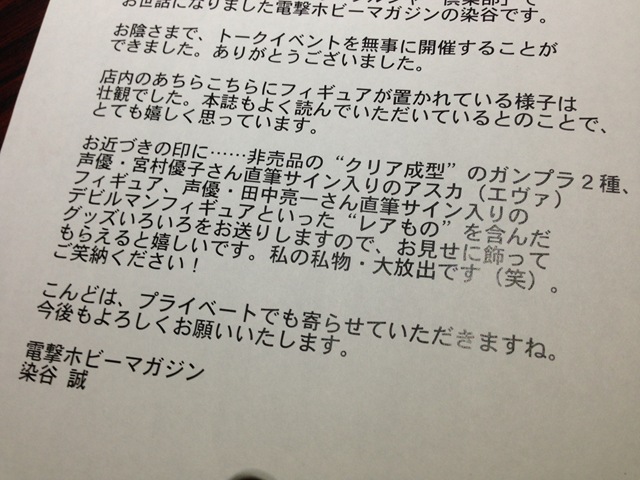 お世話になりました電撃ホビーマガジンの染谷です。
お陰さまで、トークイベントを無事に開催することが
できました。ありがとうございました。
店内のあちらこちらにフィギュアが置かれている様子は
壮観でした。本誌もよく読んでいただいているとのことで、
とても嬉しく思っています。
お近づきの印に……非売品の“クリア成型”のガンプラ２種、
声優・宮村優子さん直筆サイン入りのアスカ（エヴァ）
フィギュア、声優・田中亮一さん直筆サイン入りの
デビルマンフィギュアといった“レアもの”を含んだ
グッズいろいろをお送りしますので、お見せに飾って
もらえると嬉しいです。私の私物・大放出です（笑）。
ご笑納ください！
こんどは、プライベートでも寄らせていただきますね。
今後もよろしくお願いいたします。
電撃ホビーマガジン
染谷 誠